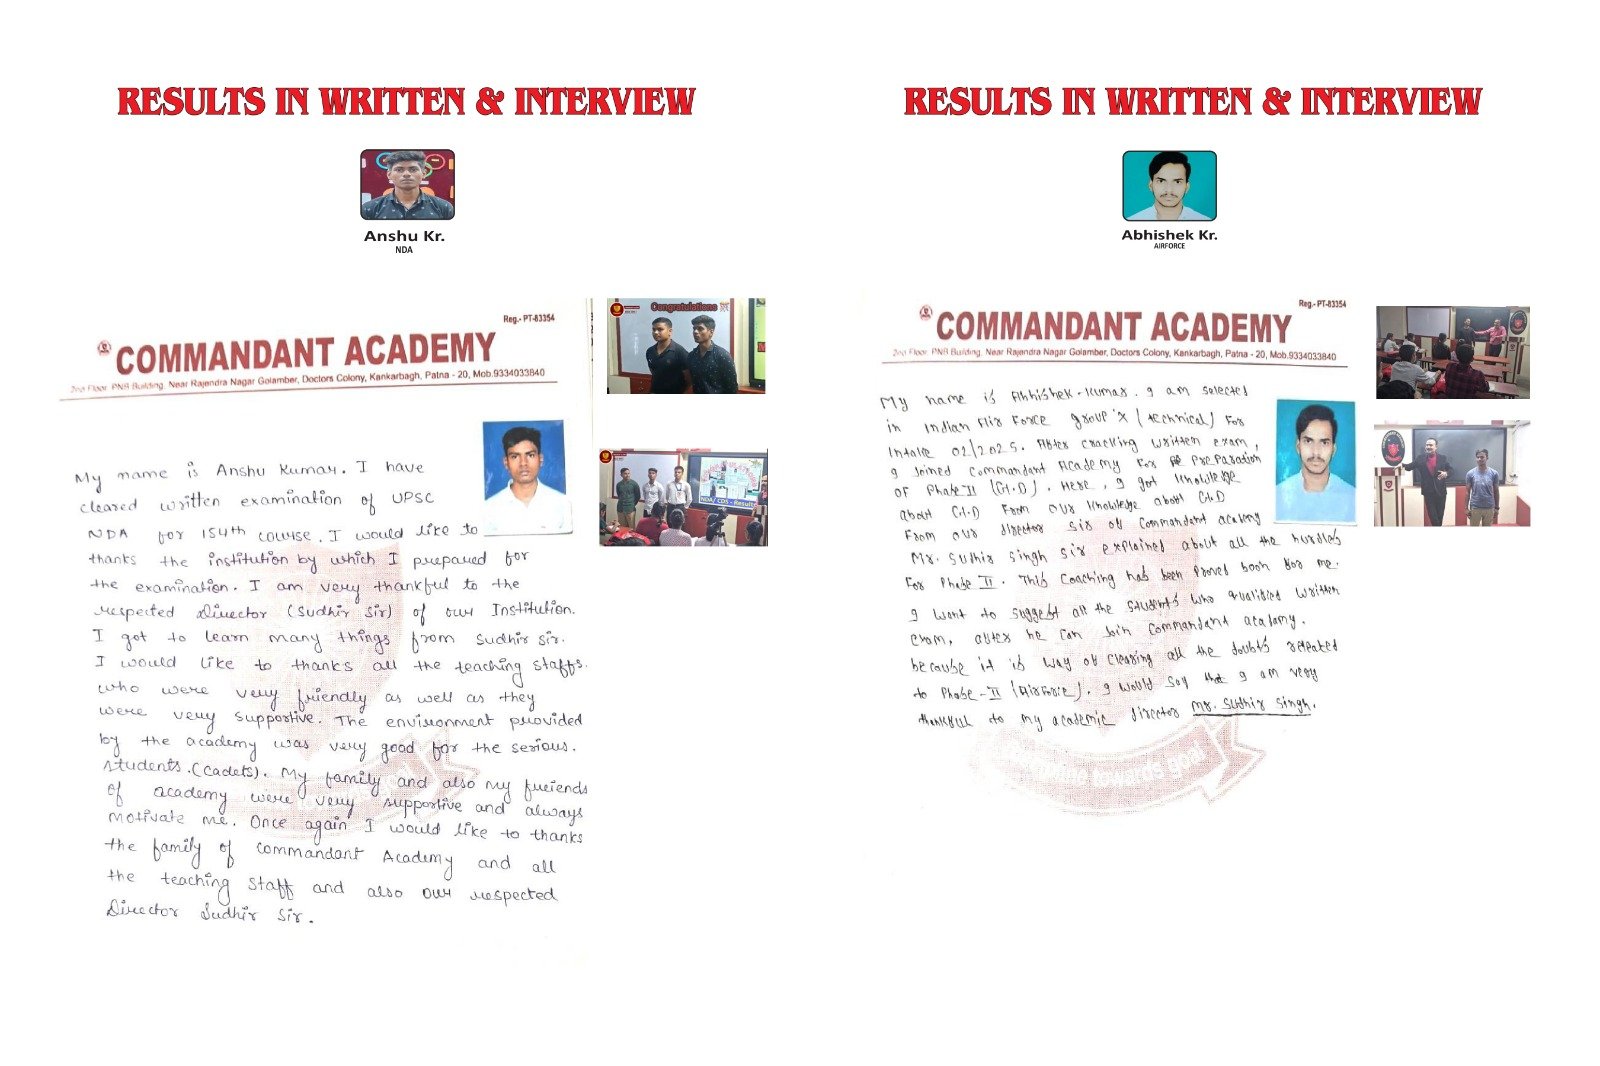 RESULTS IN WRITTEN & INTERVIEW
Anshu Kr.
NDA
Reg.- PT-83354
COMMANDANT ACADEMY
2nd Floor, PNB Building, Near Rajendra Nagar Golamber, Doctors Colony, Kankarbagh, Patna - 20, Mob.9334033840
My name is Anshu Kumar. I have
cleared written examination of UPSC
NDA for 154th course. I would like to
thanks the institution by which I prepared for
the examination. I am very thankful to the
respected Director (Sudhir Sir) of our Institution.
I got to learn many things from Sudhir Sir.
I would like to thanks all the teaching staffs.
who were very friendly as well as they
were very supportive. The environment provided
by the academy was very good for the serious.
students.(cadets). My family and also my freiends
of academy were very supportive and always
motivate me. Once again I would like to thanks
the family of commandant Academy and all
the teaching staff and also our respected
Director Sudhir Sir.
Congratulations
NDA/ CDS - Results
RESULTS IN WRITTEN & INTERVIEW
Abhishek Kr.
AIRFORCE
Reg.- PT-83354
COMMANDANT ACADEMY
2nd Floor, PNB Building, Near Rajendra Nagar Golamber, Doctors Colony, Kankarbagh, Patna - 20, Mob.9334033840
My name is Abhishek-Kumar. I am selected
in Indian Air Force group 'x' (technical) For
Intake 02/2025. After cracking written exam,
I Joined Commandant Academy For Preparation
of Phase-II (G.D). Here, I got knowledge
about G.D From our knowledge about G.D
From our director sir of Commandant acadamy
Mr. Sudhir Singh sir explained about all the hurdles
For Phase II. This Coaching has been Proved boon for me.
I want to suggest all the students who qualified written
exam, after he can Join Commandant acadamy.
because it is way of clearing all the doubts releated
to Phase-II (AirForce). I would say that I am very
thankfull to my academic director Mr. Sudhir Singh.